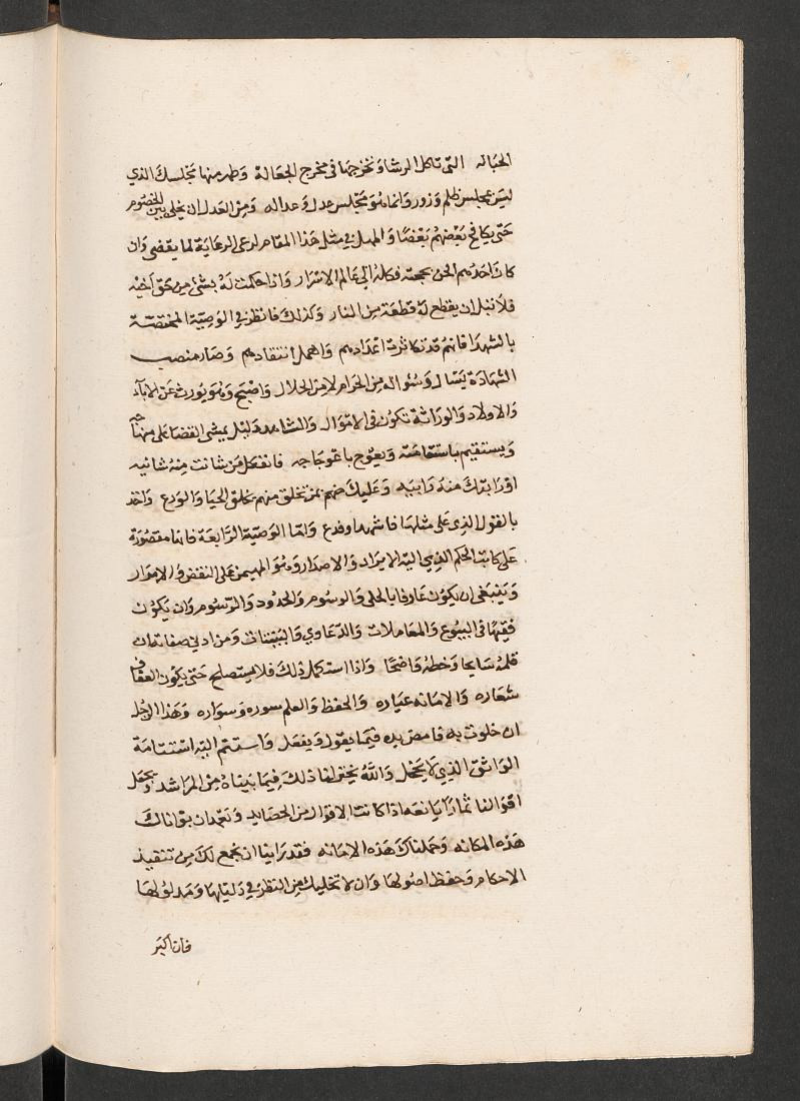 الحباله التى تاكل الرشا وتخرجها فى مخرج الجعالة وطهر منها مجلسك الذي
ليس بمجلس ظلم وزور وانما هو مجلس عدل وعداله ومن العدل ان يخلى بين الخصوم
حتى يكافح بعضهم بعضا والمهل في مثل هذا المقام لرعى الرعاية لما يقضى وان
كان احدهم الحن بحجته فكله الي عالم الاسرار واذا حكمت له بشئ من حق اخيه
فلا نبل ان يقطع له قطعة من النار وكذلك فانظر في الوصية المختصة
بالشهدا فانهم قد تكاثرت اعدادهم واهمل انتقادهم وصار منصب
الشهادة يسال وسواله من الحرام لا من الحلال واصبح وهو يورث عن الاباء
والاولاد والوراثة تكون فى الاموال والشاهد دليل يمشى القضا على منهاجه
ويستقيم باستقامته ويعوج باعوجاجه فانفعل من شانت منه شانيه
او رابك منه رابيه وعليك منهم بمن تخلق منهم بخلق الحيا والورع واخذ
بالقول الذى على مثلها فاشهد او فدع واما الوصية الرابعة فانها مقصورة
على كاتب الحكم الذي اليه الايراد والاصدار وهو المهيمن على النقض والامرار
وينبغى ان يكون عارفا بالحلى والوسوم والحدود والرسوم وان يكون
فقيها فى البيوع والمعاملات والدعاوي والبينات ومن ادنى صفاته ان
قلمه سايحا وخطه واضحا واذا استكمل ذلك فلا يستصلح حتى يكون العفاف
شعاره والامانه عياره والحفظ والعلم سوره وسواره وهذا الرجل
ان خلوت به فامض يده فيما يقول ويفعل واستنم اليه استنامة
الواثق الذي لا يخجل والله يختم لنا ذلك فيما بيناه من المراشد ويجعل
اقوالنا ثمارا يانعه اذا كانت الاقوال من الحصايد وبعد ان بواناك
هذه المكانه وحملناك هذه الامانه فقد راينا ان نجمع لك من تنفيذ
الاحكام وحفظ اصولها وان لا تخليك من النظر في دليلها ومدلولها
فان اكبر